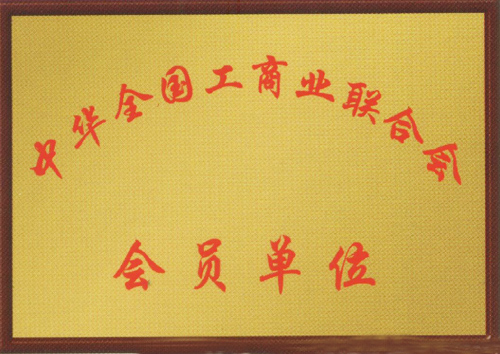 中华全国工商业联合会
会员单位